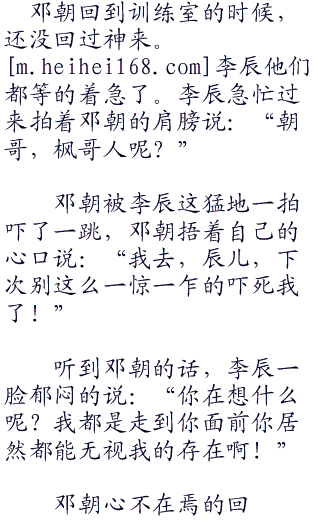 邓朝回到训练室的时候，
还没回过神来。
[m.heihei168.com]李辰他们
都等的着急了。李辰急忙过
来拍着邓朝的肩膀说：“朝
哥，枫哥人呢？”
邓朝被李辰这猛地一拍
吓了一跳，邓朝捂着自己的
心口说：“我去，辰儿，下
次别这么一惊一乍的吓死我
了！”
听到邓朝的话，李辰一
脸郁闷的说：“你在想什么
呢？我都是走到你面前你居
然都能无视我的存在啊！”
邓朝心不在焉的回